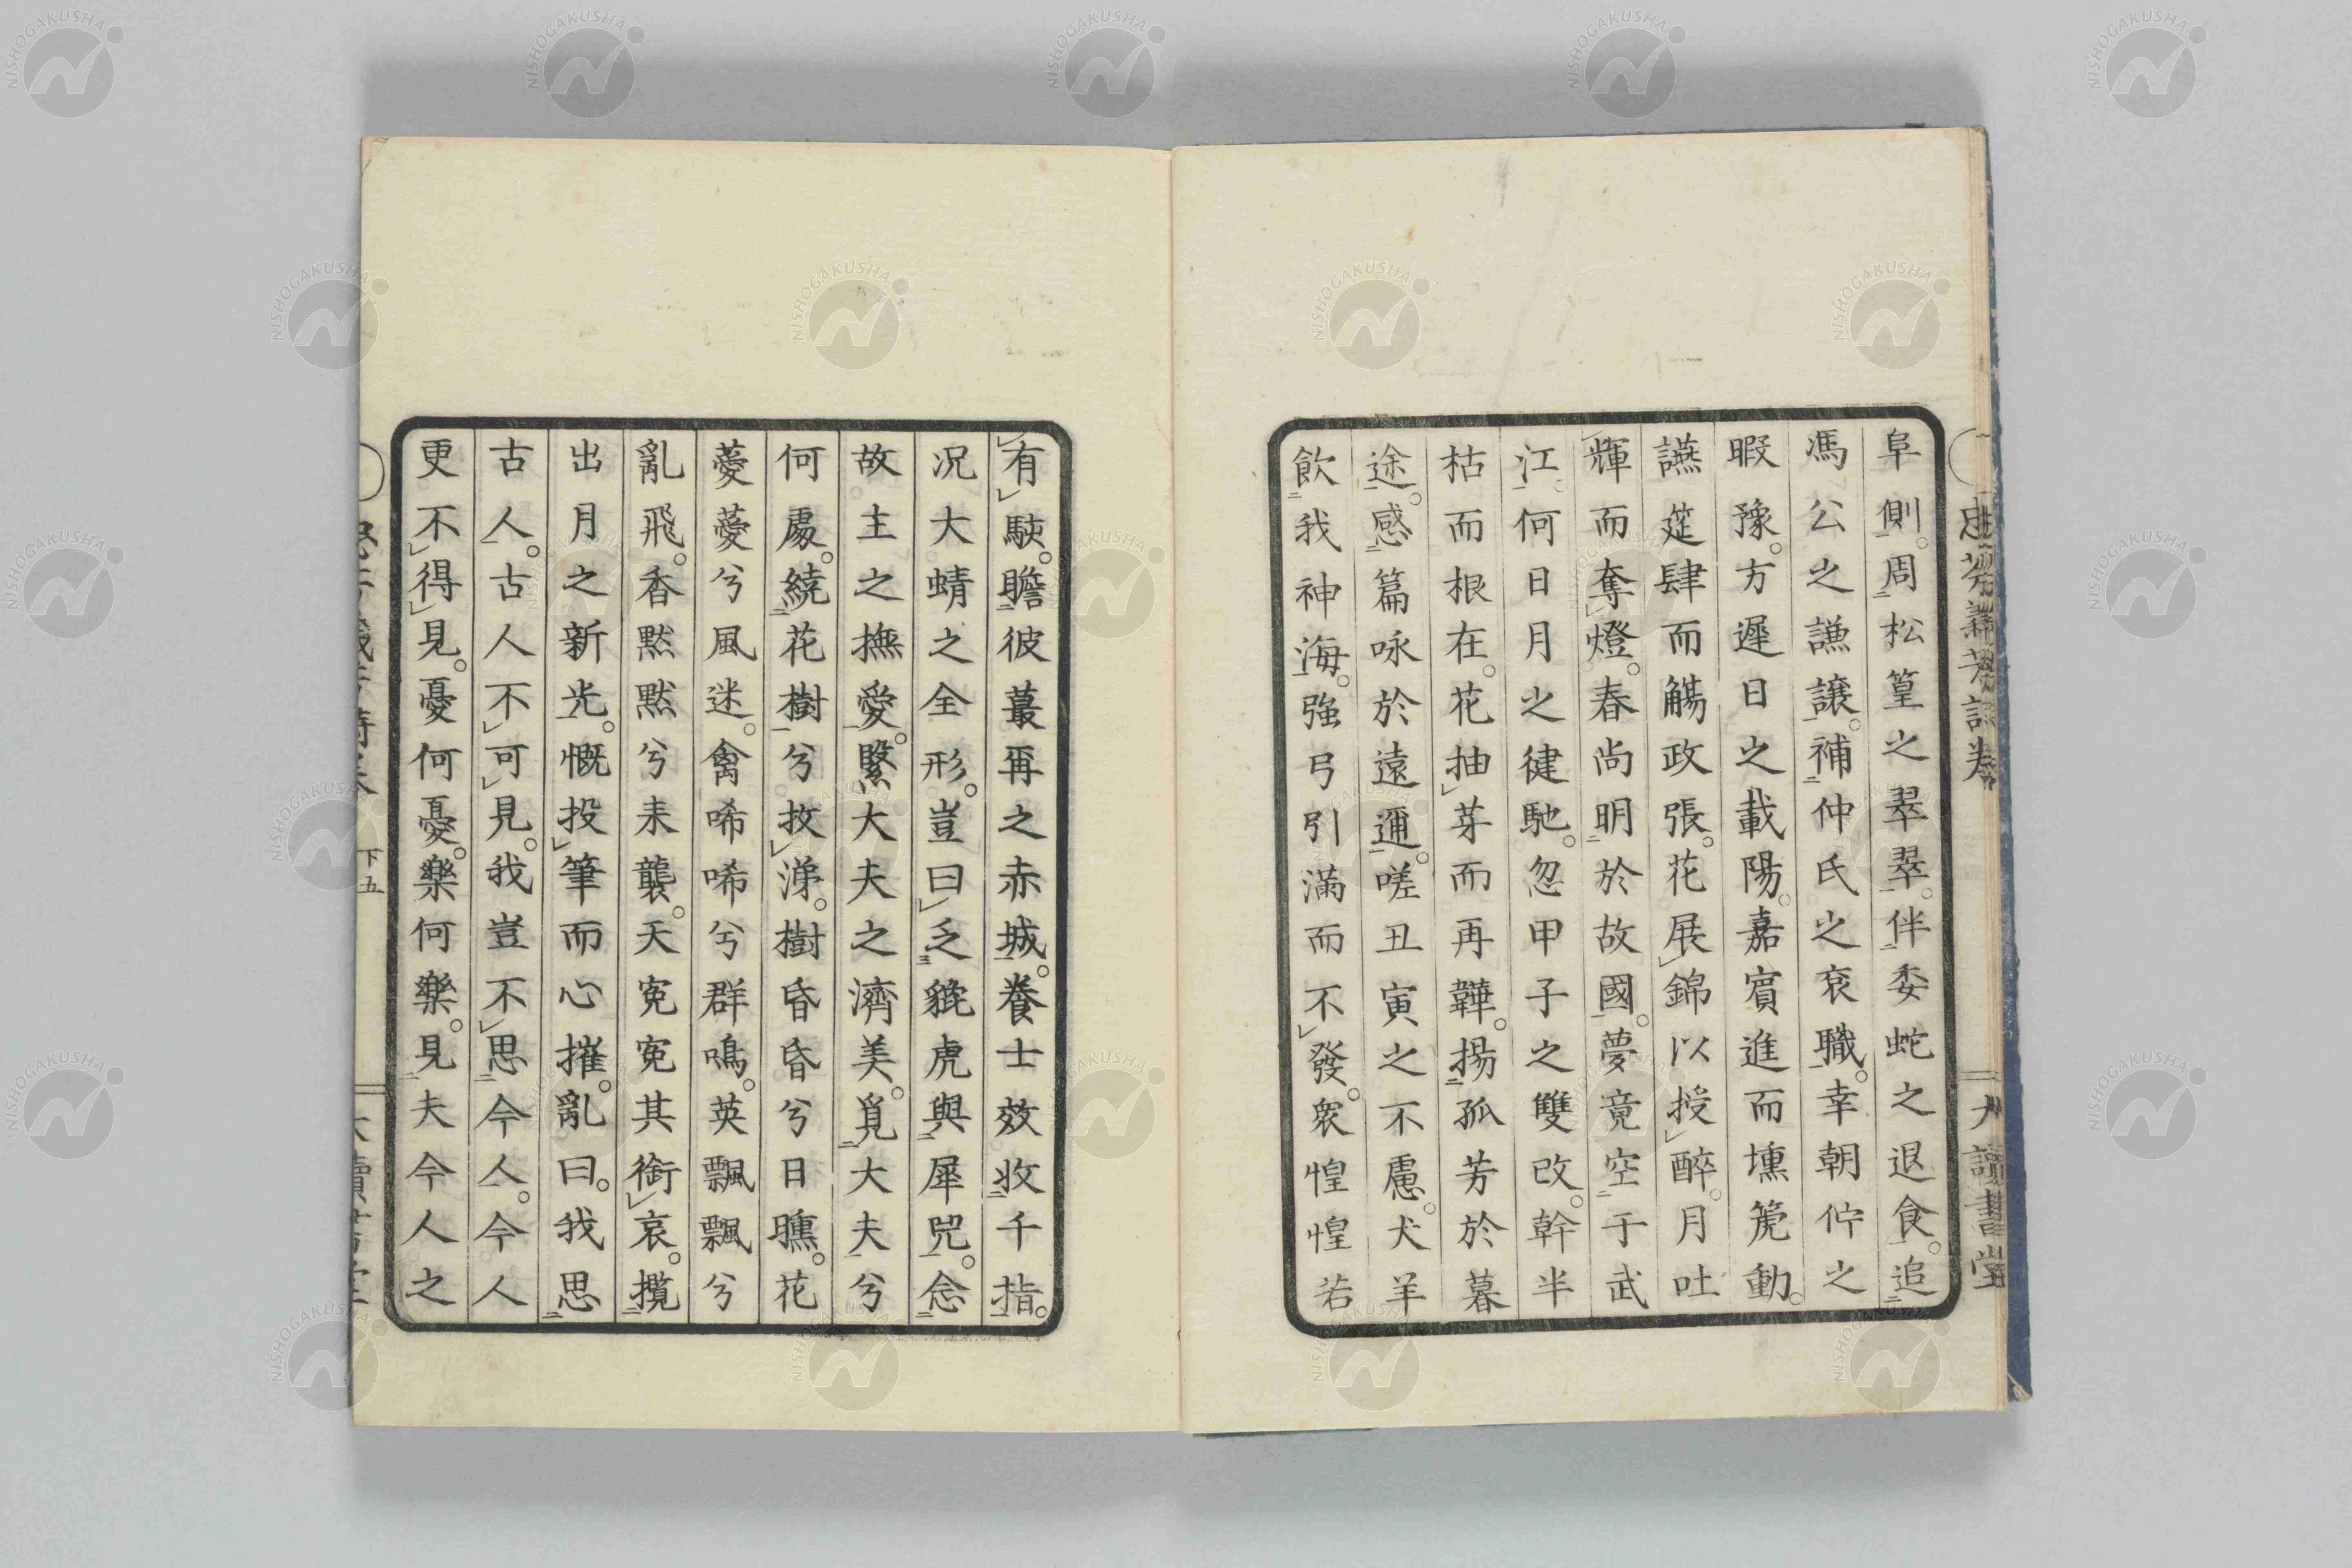 阜側。周松篁之翠翠。伴委蛇之退食。追
馮公之謙讓。補仲氏之袞職。幸朝佇之
暇豫。方遲日之載陽。嘉賓進而壎箎動。
讌筵肆而觴政張。花展錦以授醉。月吐
輝而奪燈。春尚明於故國。夢竟空于武
江。何日月之健馳。忽甲子之雙改。幹半
枯而根在。花抽芽而再韡。揚孤芳於暮
途。感篇咏於遠邇。嗟丑寅之不慮。犬羊
飲我神海。強弓引滿而不發。衆惶惶若
有駛。瞻彼蕞再之赤城。養士效收千指。
况大蜻之全形。豈曰乏貔虎與犀兕。念
故主之撫愛。繄大夫之濟美。覓大夫兮
何處。繞花樹兮抆涕。樹昏昏兮日曛。花
薆薆兮風迷。禽唏唏兮群鳴。英飄飄兮
亂飛。香黙黙兮耒襲。天寃寃其銜哀。攬
出月之新光。慨投筆而心摧。亂曰。我思
古人。古人不可見。我豈不思今人。今人
更不得見。憂何憂。樂何樂。見夫今人之
下五
大讀書堂
NISHOGAKUSHA